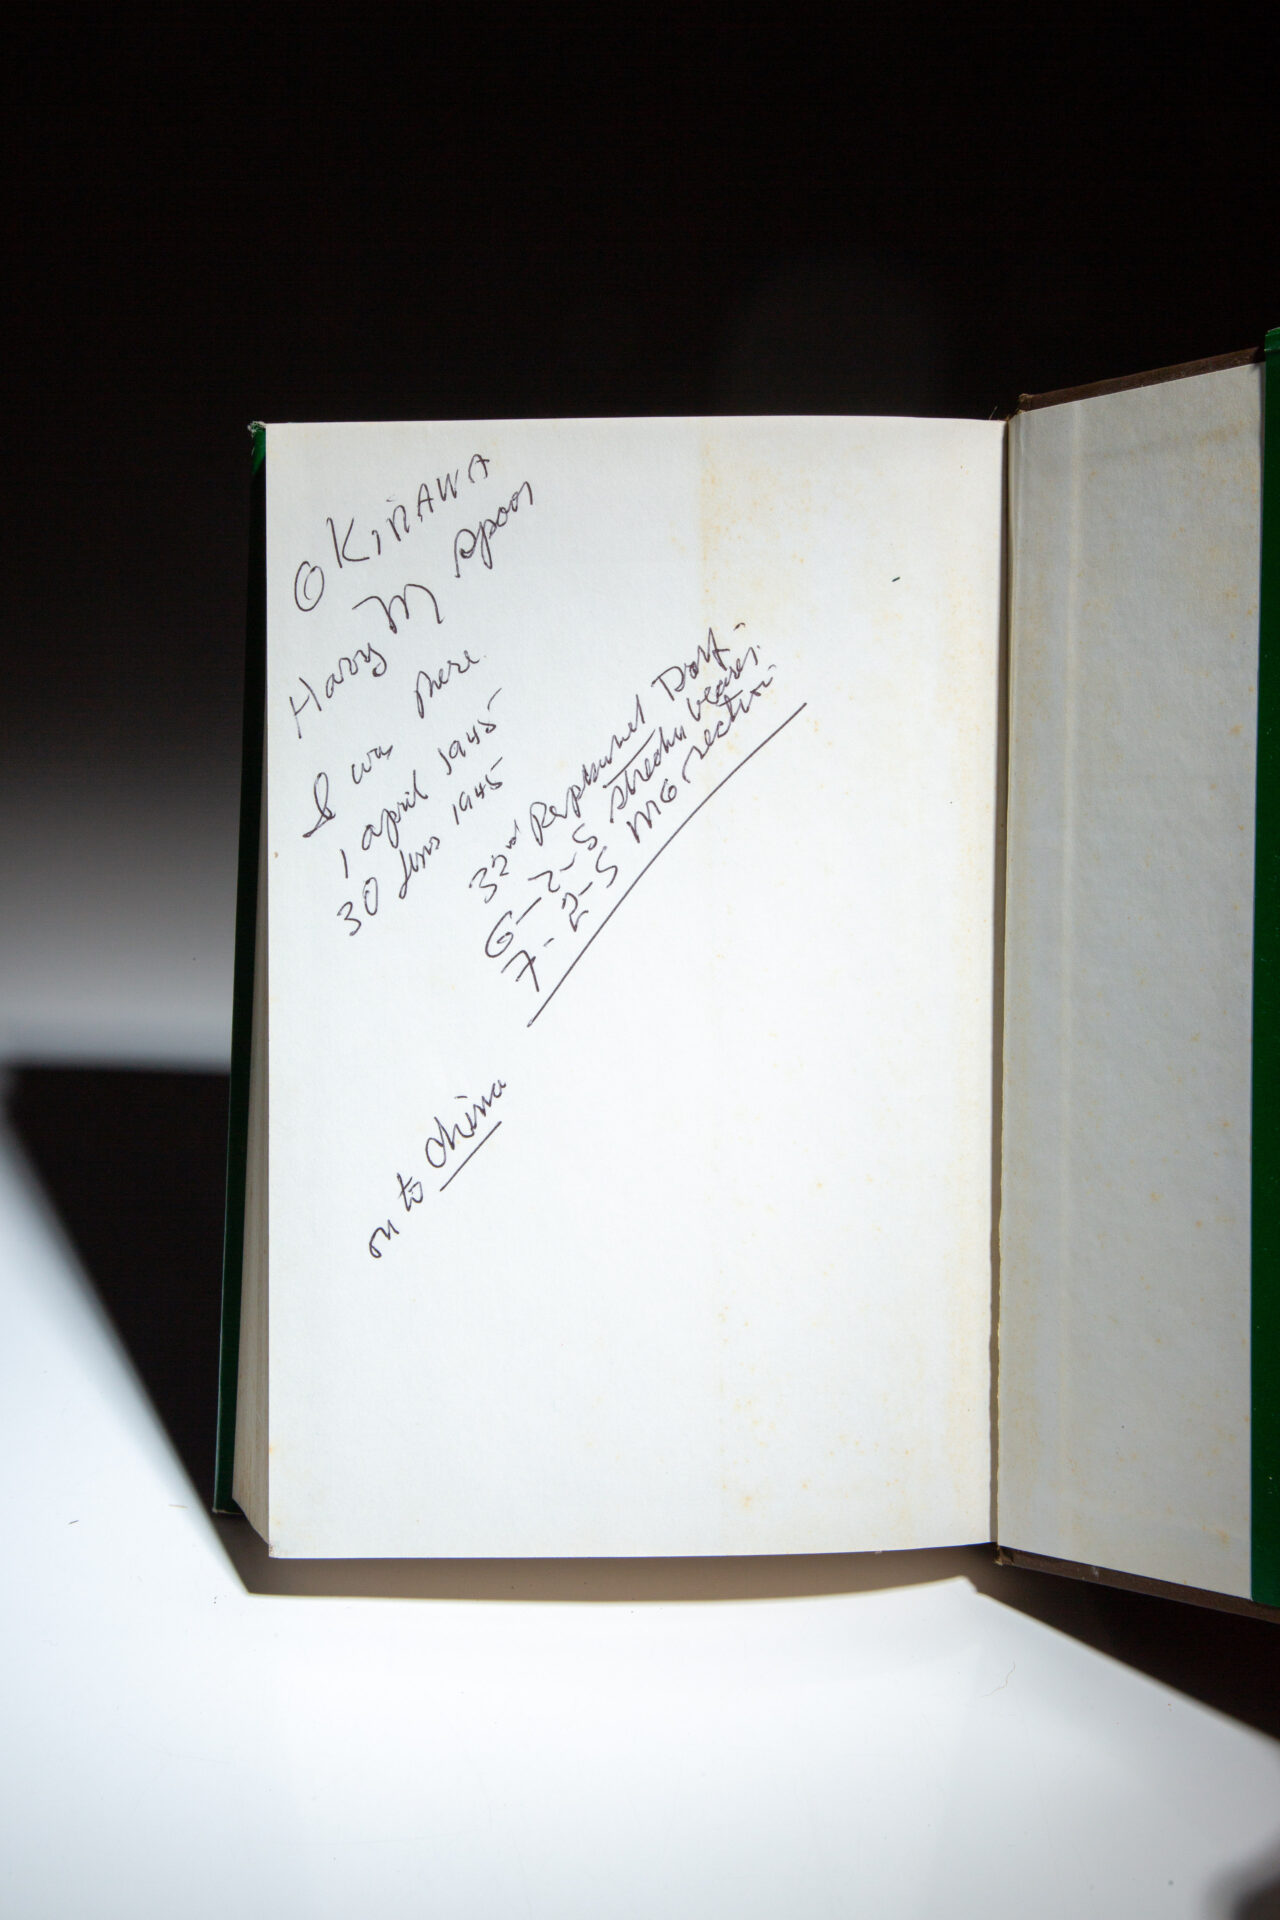 OKINAWA
Harry M Spoon
I was there
1 april 1945
30 June 1945
32nd Replacement Draft
G-2-5 strecher bearer
7-2-5 MG section
on to China